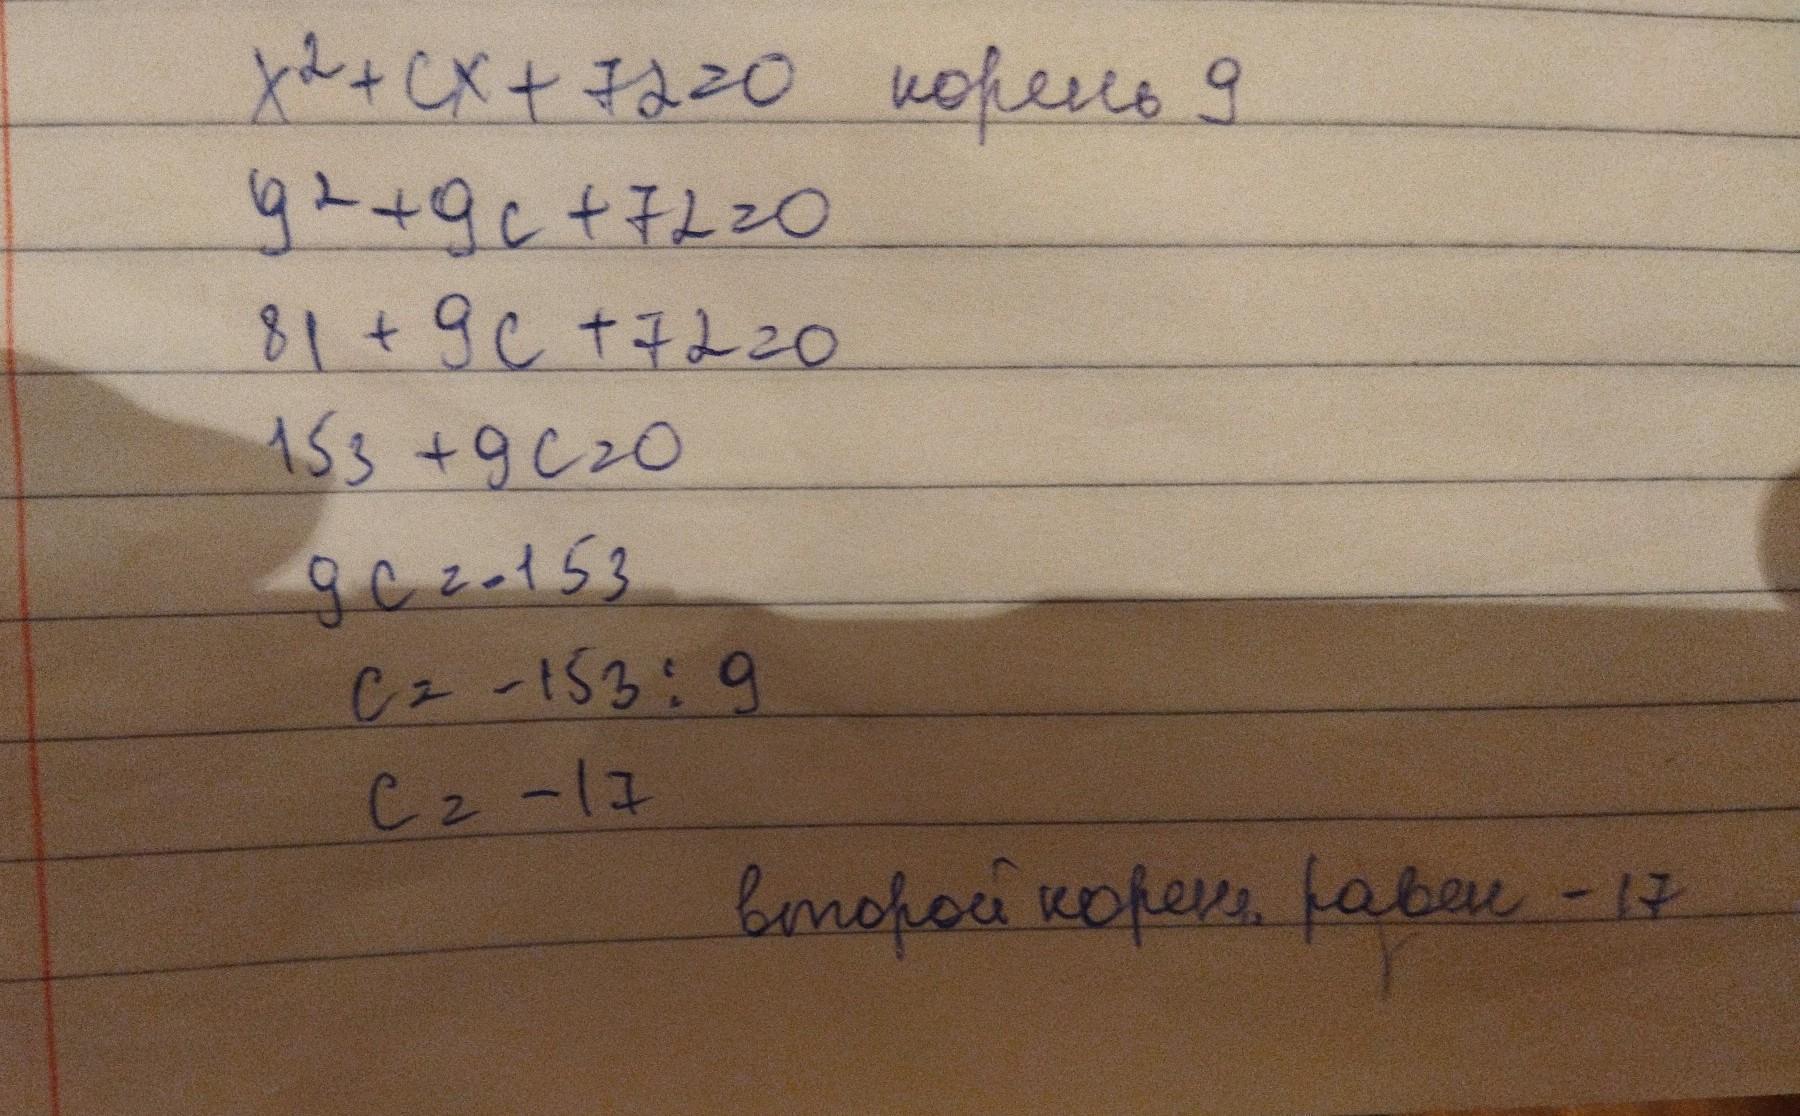 x²+cx+72=0 корень 9
9²+9c+72=0
81+9c+72=0
153+9c=0
9c=-153
c=-153:9
c=-17
второй корень равен -17